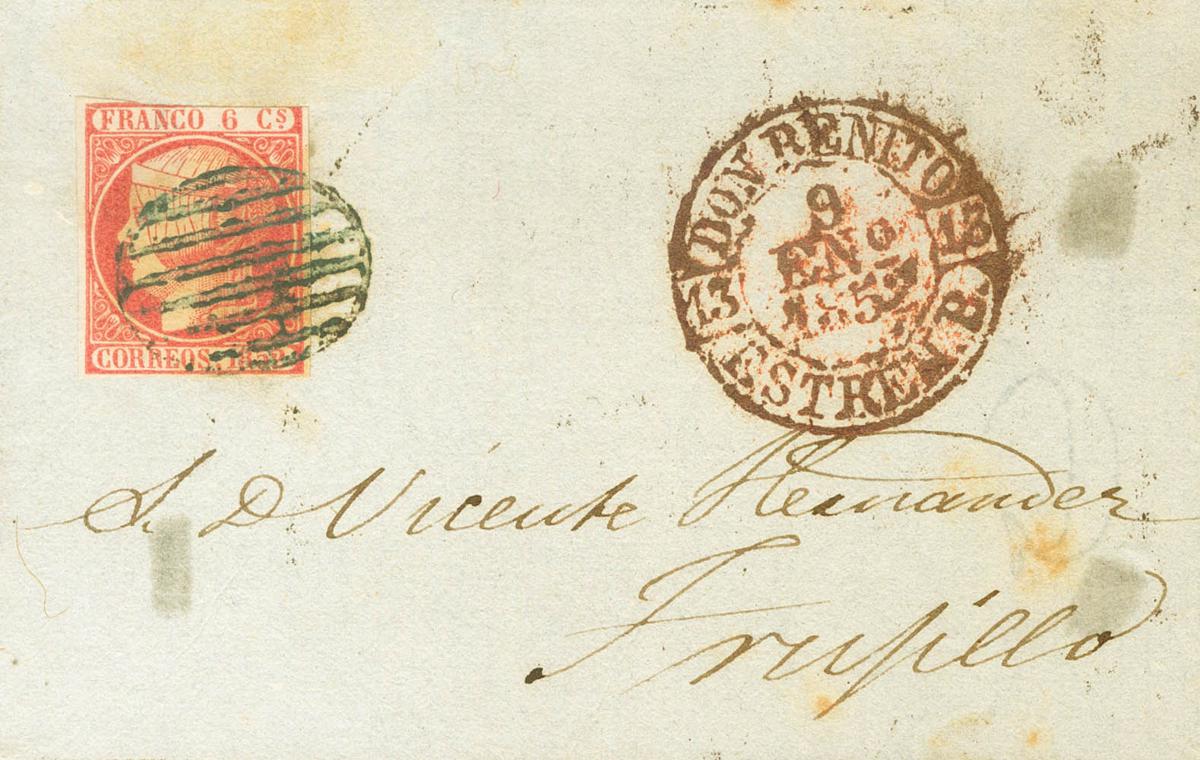 FRANCO 6 Cs
CORREOS. 1852.
DON BENITO
13
9
ENo
1853
13
ESTREM. B.
S. D Vicente Hernandez
Trujillo